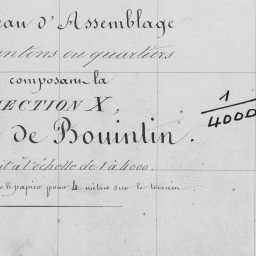 eau d'Assemblage
antons ou quartiers
composant la
SECTION X,
de Bouintin.
it à l'échelle de 1 à 4000.
le papier pour 4 mètres sur le terrain
1/4000